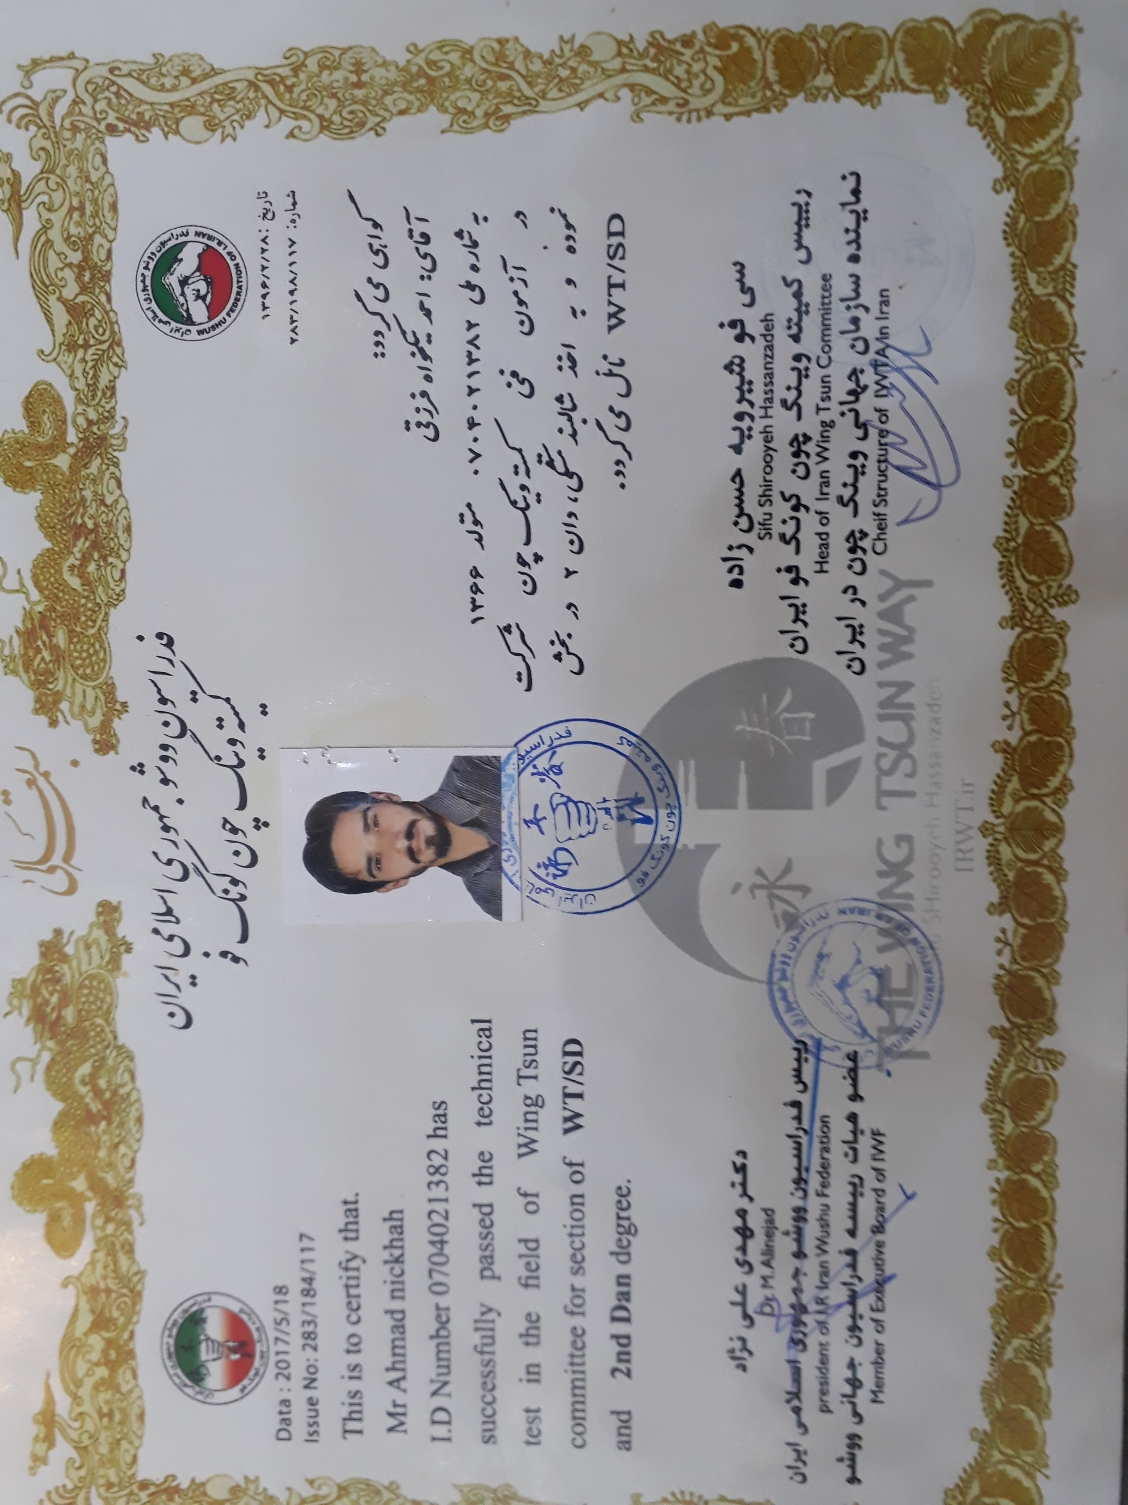 بسمه تعالی
فدراسیون ووشو جمهوری اسلامی ایران
کمیته وینگ چون کونگ فو
تاریخ: ۱۳۹۶/۲/۲۸
شماره: ۲۸۳/۱۹۸/۱۱۷
گواهی می گردد:
آقای: احمد نیکخواه فرزقی
به شماره ملی ۰۷۰۴۰۲۱۳۸۲ متولد ۱۳۶۶
در آزمون فنی کمیته وینگ چون شرکت
نموده و به اخذ شالبند مشکی، دان ۲ در بخش
WT/SD نائل می گردد.
Data : 2017/5/18
Issue No: 283/184/117
This is to certify that.
Mr Ahmad nickhah
I.D Number 0704021382 has
successfully passed the technical
test in the field of Wing Tsun
committee for section of WT/SD
and 2nd Dan degree.
سی فو شیرویه حسن زاده
Sifu Shirooyeh Hassanzadeh
رییس کمیته وینگ چون کونگ فو ایران
Head of Iran Wing Tsun Committee
نماینده سازمان جهانی وینگ چون در ایران
Cheif Structure of IWTA in Iran
دکتر مهدی علی نژاد
Dr. M.Alinejad
رییس فدراسیون ووشو جمهوری اسلامی ایران
president of I.R Iran Wushu Federation
عضو هیات رییسه فدراسیون جهانی ووشو
Member of Executive Board of IWF
永 春
THE WING TSUN WAY
SHirooyeh Hassanzadeh
IRWT.ir
فدراسیون ووشو جمهوری اسلامی ایران
WUSHU FEDERATION OF I.R.IRAN